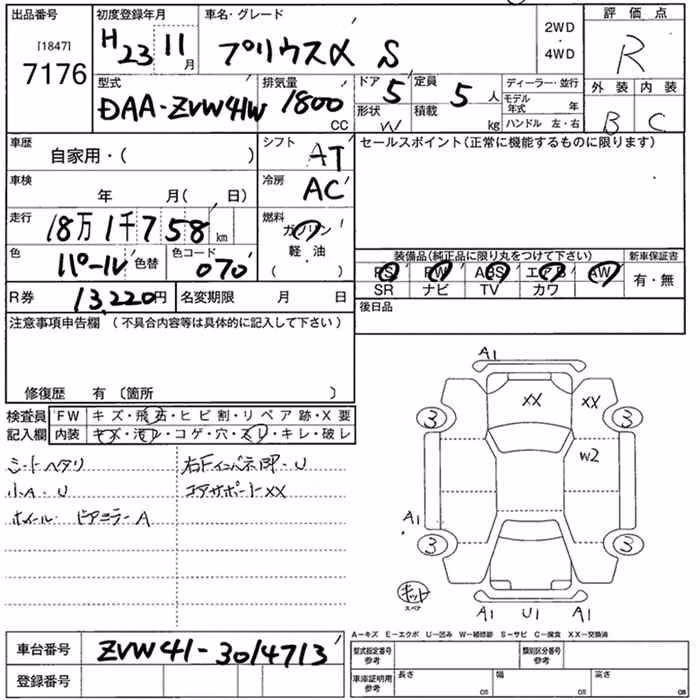 出品番号
[1847]
7176
初度登録年月
H23 11月
車名・グレード
プリウスα S
2WD
・
4WD
評価点
R
型式
DAA-ZVW41W
排気量
1800
CC
ドア
5
形状
W
定員
5人
積載
kg
ディーラー・並行
モデル年式 年
ハンドル 左・右
外装 内装
B C
車歴
自家用・( )
シフト
AT
セールスポイント(正常に機能するものに限ります)
車検
年 月( 日)
冷房
AC
走行
18万1千758km
燃料
ガソリン
軽・油
( )
色
パール
色替
色コード
070
装備品(純正品に限り丸をつけて下さい)
新車保証書
PS PW ABS エアB AW
SR ナビ TV カワ
有・無
R券
13,220円
名変期限 月 日
後日品
注意事項申告欄(不具合内容等は具体的に記入して下さい)
修復歴 有〔箇所 〕
検査員
記入欄
FW キズ・飛石・ヒビ割・リペア跡・X要
内装 キズ・汚レ・コゲ・穴・スレ・キレ・破レ
シートヘタリ
小A・U
ホイール・ドアミラーA
右Fインパネ部・U
コアサポートXX
A1
XX
XX
3
3
W2
A1
3
3
キット
スペア
A1 U1 A1
A－キズ E－エクボ U－凹み W－補修跡 S－サビ C－腐食 XX－交換済
車台番号
ZVW41-3014713
登録番号
型式指定番号
参考
類別区分番号
参考
車庫証明用
参考
長さ cm
幅 cm
高さ cm